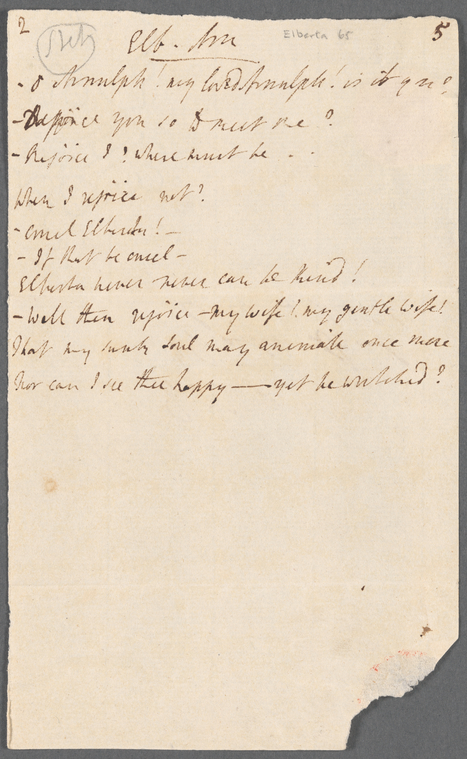 2
5
Elberta 65
Elb - Arn
- O Arnulph! my loved Arnulph! is it you?
- Rejoice you so to meet me?
- Rejoice I? where must be - -
When I rejoice not?
- cruel Elberta! -
- If that be cruel -
Elberta never - never can be kind!
- Well then rejoice - my wife! my gentle wife!
That my sunk soul may animate once more
Nor can I see thee happy —— yet be wretched?